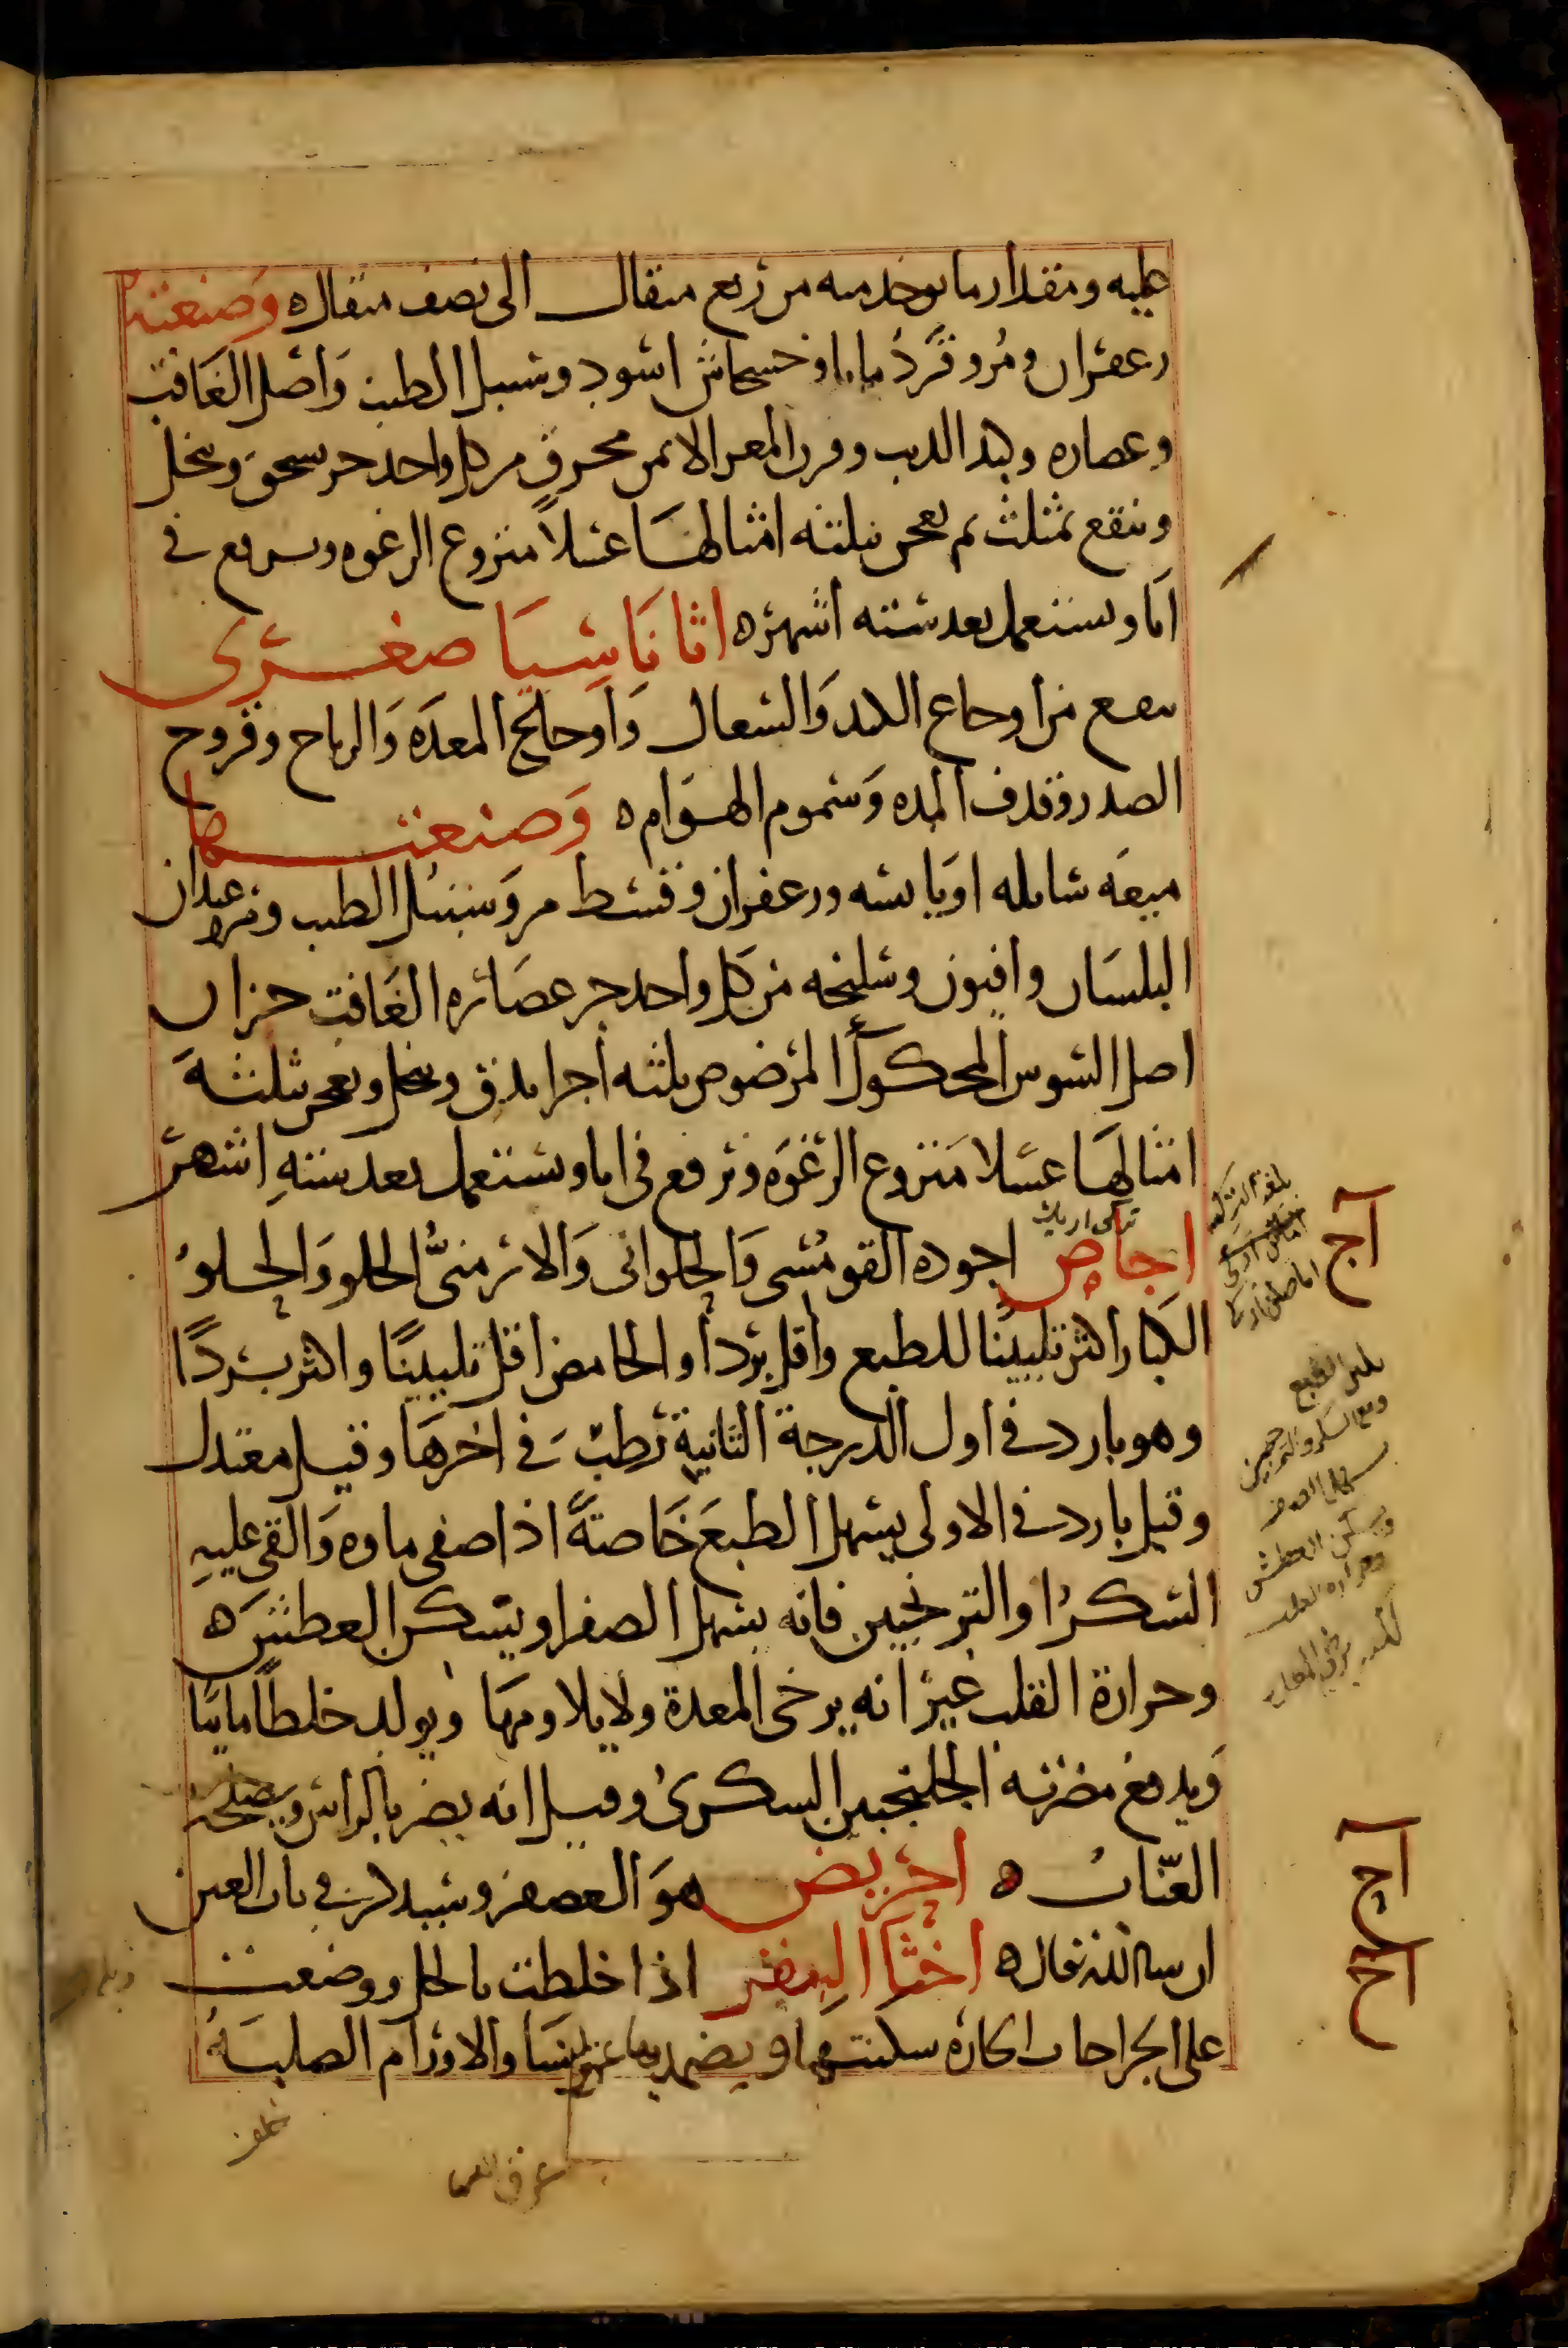 عليه ومقدار ما يوخد منه من ربع مثقال الى نصف مثقال ه وصنعته
زعفران ومر وقردمانا وخشخاش اسود وسنبل الطيب واصل الغافت
وعصاره وكبد الديب وقرن المعز الايمن محرق من كل واحد جز يسحق وينخل
وينقع بمثلث ثم يعجن بثلثه امثالها عسلا منزوع الرغوه ويرفع في
انا ويستعمل بعد سته اشهر ه اثاناسيا صغرى
ينفع من اوجاع الكبد والسعال واوجاع المعده والرياح وقروح
الصدر وقذف المده وسموم الهوام ه وصنعتها
ميعه سايله او يابسه وزعفران وقسط مر وسنبل الطيب وعيدان
البلسان وافيون وسليخه من كل واحد جز عصاره الغافت جزان
اصل السوس المحكوك المرضوض ثلثه اجزا يدق وينخل ويعجن بثلثه
امثالها عسلا منزوع الرغوه وترفع في انا ويستعمل بعد سته اشهر
اجاص اجوده القومسي والحلواني والارمني الحلو والحلو
الكبار اكثر تليينا للطبع واقل بردا والحامض اقل تليينا واكثر بردا
وهو بارد في اول الدرجة الثانية رطب في اخرها وقيل معتدل
وقيل بارد في الاولى يسهل الطبع خاصة اذا صفى ماوه والقى عليه
السكر او الترنجبين فانه يسهل الصفرا ويسكن العطش ه
وحرارة القلب غير انه يرخى المعدة ولا يلاومها ويولد خلطا مائيا
ويدفع مضرته الجلنجبين السكرى وقيل انه يضر بالراس ويصلحه
العناب ه احريض هو العصفر وسيذكر في باب العين
ان شا الله تعالى ه اخثا البقر اذا خلطت بالخل ووضعت
على الجراحات الحاره سكنتها ويضمد بها عرق النسا والاورام الصلبه
آج
يلين الطبع
ومع السكر والترنجبين
يسهل الصفرا
ويسكن العطش
وحرارة القلب
آح
آخ
عرق النسا